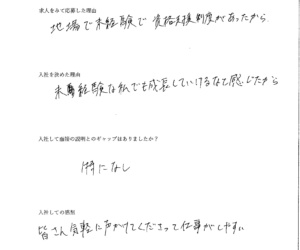 求人をみて応募した理由
地場で未経験で資格支援制度があったから
入社を決めた理由
未経験な私でも成長していけるなと感じたから
入社して面接の説明とのギャップはありましたか?
特になし
入社しての感想
皆さん気軽に声がけてくださって仕事がしやすい